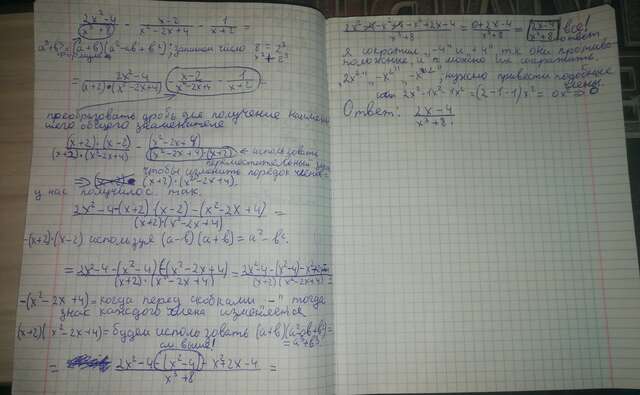 (2x²-4)/(x³+8) - (x-2)/(x²-2x+4) - 1/(x+2)
a³+b³=(a+b)(a²-ab+b²); запишем число 8=2³
формула x³+8³
(2x²-4)/((x+2)·(x²-2x+4)) - (x-2)/(x²-2x+4) - 1/(x+2) =
преобразовать дробь для получение наимень
шего общего знаменателя
((x+2)·(x-2))/((x+2)·(x²-2x+4)) - (x²-2x+4)/((x²-2x+4)·(x+2)) ← использовать
переместительный
чтобы изменить порядок
=> (x+2)·(x²-2x+4).
у нас получилось так.
(2x²-4-(x+2)·(x-2)-(x²-2x+4))/((x+2)·(x²-2x+4)) =
-(x+2)·(x-2) используя (a-b)(a+b)=a²-b².
= (2x²-4-(x²-4)-(x²-2x+4))/((x+2)·(x²-2x+4)) = (2x²-4-(x²-4)-x²+2x-4)/((x+2)(x²-2x+4)) =
-(x²-2x+4)= когда перед скобками „-" тогда
знак каждого члена изменяется
(x+2)(x²-2x+4)=будем использовать (a+b)(a²-ab+b²)=
см выше! =a³+b³
= (2x²-4-(x²-4)-x²+2x-4)/(x³+8) =
(2x²-4-x²+4-x²+2x-4)/(x³+8) = (0+2x-4)/(x³+8) = (2x-4)/(x³+8) все!
ответ
я сократил „-4" и „+4", т.к они противо-
положение, и можно их сократить.
„2x²", „-x²" „-x²", нужно привести подобные
члены.
или 2x²-1x²-1x²=(2-1-1)x²=0x²=0
Ответ: (2x-4)/(x³+8).